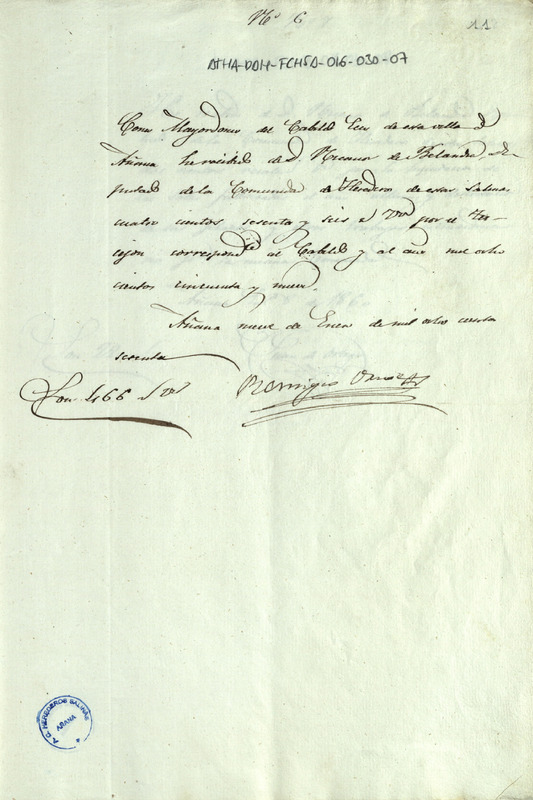 Nº 6
11
ATHA-DAH-FCHSA-016-030-07
Como Mayordomo del Cabildo Eco de esta villa de
Añana he recibido de D. Nicanor de Belandia, De-
putado de la Comunidad de Herederos de estas Salinas
cuatro cientos sesenta y seis r. von por el Tor-
cijon correspondte al Cabildo y al año mil ocho
cientos cincuenta y nueve.
Añana nueve de Enero de mil ocho cientos
sesenta
Son 466 r von
Remigio
A. C. HEREDEROS SALINAS
AÑANA